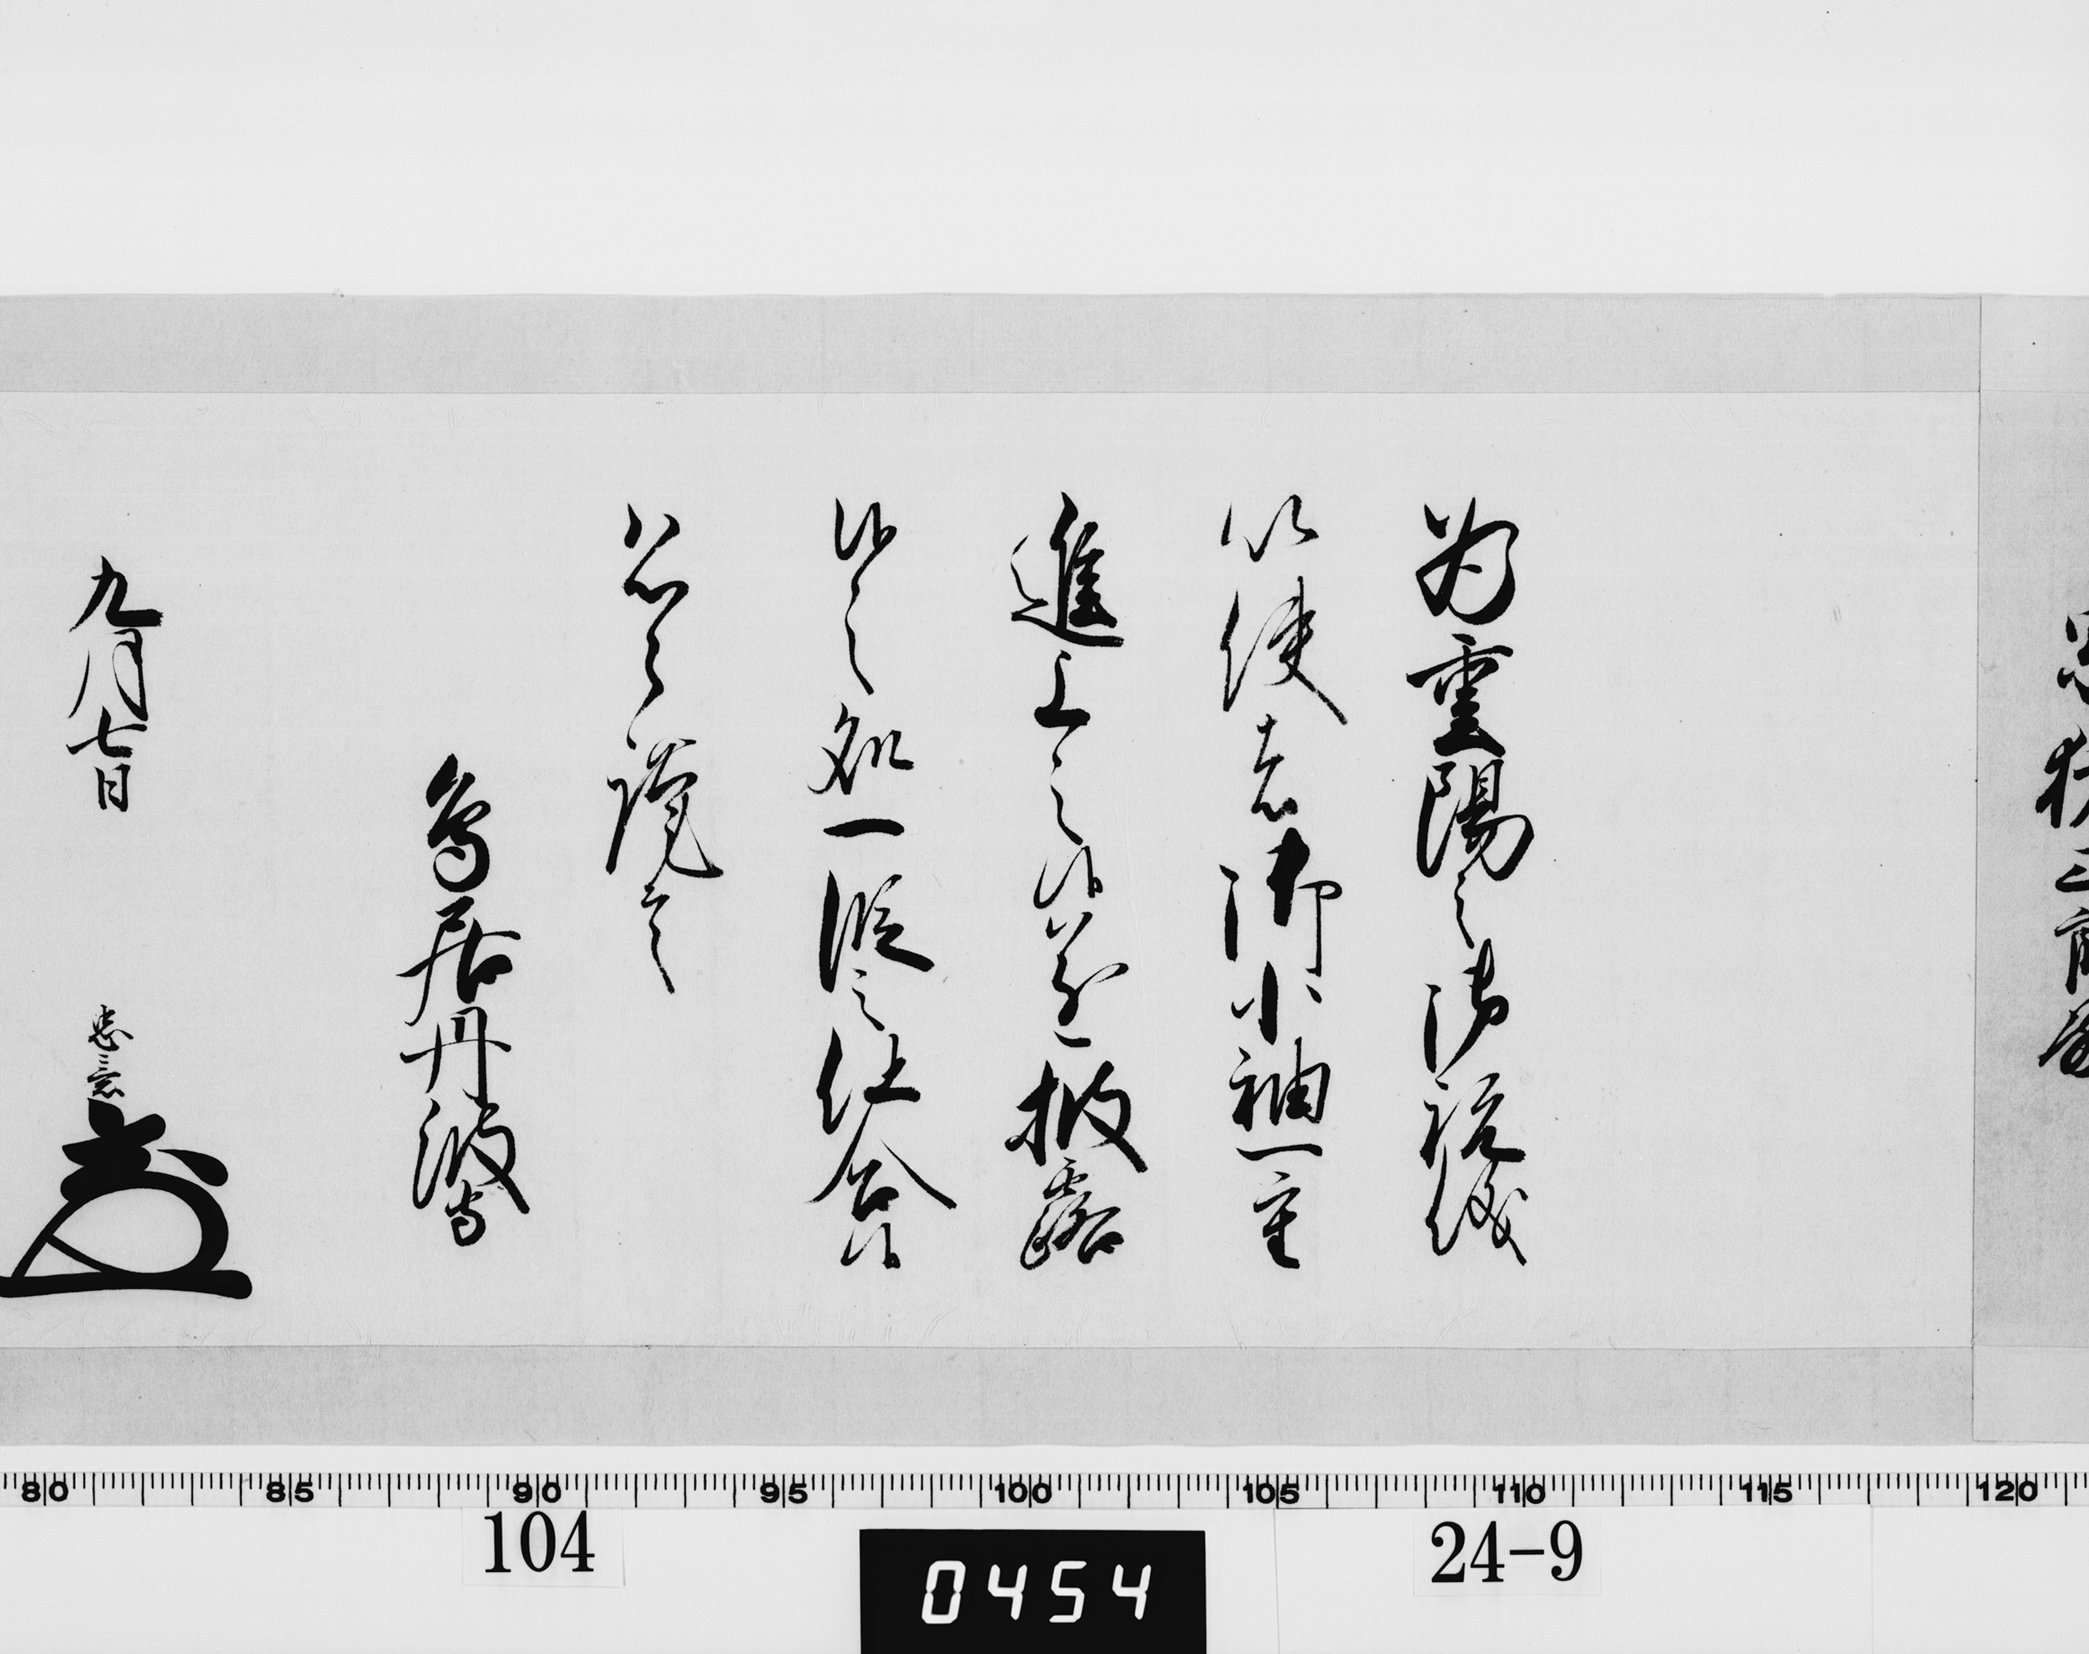 為重陽之御祝儀
以使者御小袖一重
進上之候遂披露
候之処一段之仕合候
恐々謹言
鳥居丹波守
九月七日 忠意
80 85 90 95 100 105 110 115 120
104
0454
24-9